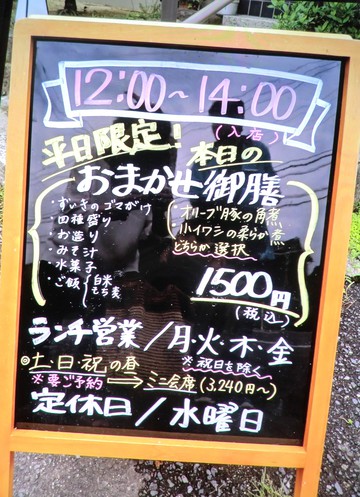 12:00~14:00
(入店)
平日限定!
本日の
おまかせ御膳
・ずいきのゴマがけ
・四種盛り
・お造り
・みそ汁
・水菓子
・ご飯(白米
もち麦
・オリーブ豚の角煮
・小イワシの柔らか煮
どちらか選択
1500円
(税込)
ランチ営業/月・火・木・金
※祝日を除く
◎土・日・祝の昼
※要ご予約⟹ミニ会席(3,240円~)
定休日/水曜日